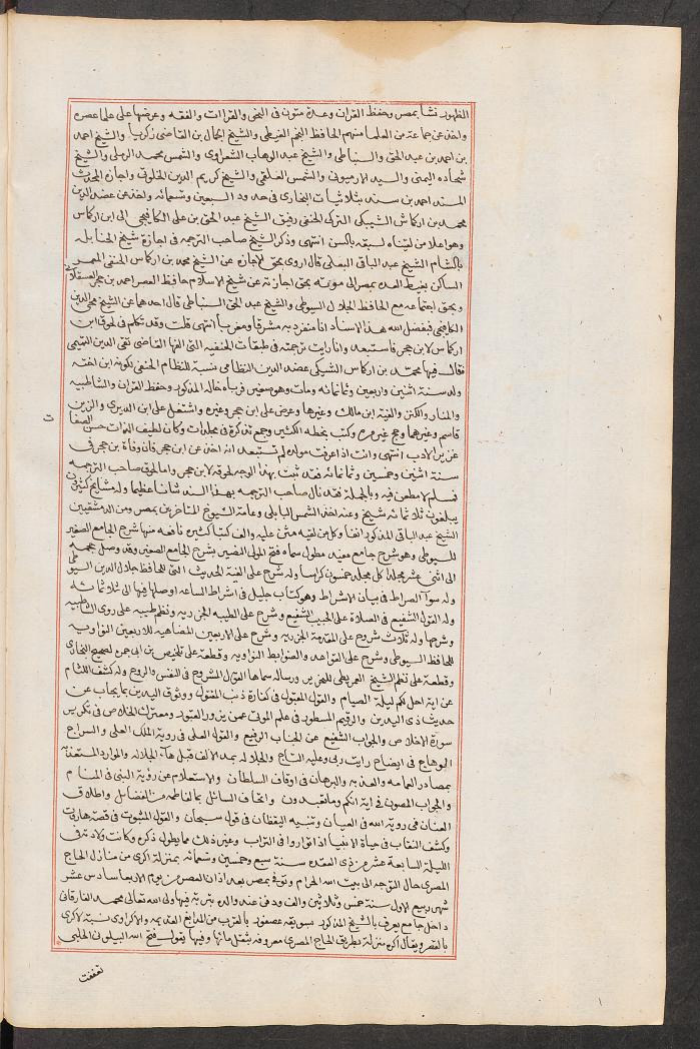 الظهور نشأ بمصر وحفظ القران وعدة متون فى النحو والقراات والفقه وعرضها على علما عصره
واخذ عن جماعة من العلما منهم الحافظ النجم الغيطى والشيخ الجمال بن القاضى زكريا والشيخ احمد
بن احمد بن عبد الحق والسنباطى والشيخ عبد الوهاب الشعراوى والشمس محمد الرملى والشيخ
شحاده اليمنى والسيد الارميونى والشمس العلقمى والشيخ كريم الدين الخلوتى واجازه المحدث
المسند احمد بن سند بثلاثيات البخارى فى حدود السبعين وتسعمائه واخذ عن عضد الدين
محمد بن اركماش الشيبكى التركى الحنفى رفيق الشيخ عبد الحق بن على الكافيجى الى ابن اركماس
وهو اعلا من لقيناه لسبقه بالسن انتهى وذكر الشيخ صاحب الترجمه فى اجازة شيخ الحنابله
بالشام الشيخ عبد الباقى البعلى قال اروى بحق الاجازه عن الشيخ محمد بن اركماس الحنفى المعمر
الساكن بغيط العده بمصر الى موته بحق اجازته عن شيخ الاسلام حافظ العصر احمد بن حجر العسقلانى
وبحق اجتماعه مع الحافظ الجلال السيوطى والشيخ عبد الحق السنباطى قال احدهما عن الشيخ محيى الدين
الكافيجى فبفضل الله هذا الاسناد انا منفرد به مشرقا ومغربا انتهى قلت وقد تكلم فى لحوق ابن
اركماس لابن حجر فاستبعد وانا رايت ترجمته فى طبقات الحنفيه التى الفها القاضى تقى الدين التميمى
فقال فيها محمد بن اركماس الشبكى عضد الدين النظامى نسبة للنظام الحنفى لكونه ابن اخته
ولد سنة اثنين واربعين وثمانمائه ومات وهو صغير فرباه خاله المذكور وحفظ القران والشاطبيه
والمنار والكنز والفية ابن مالك وغيرها وعرض على ابن حجر وغيره واشتغل على ابن الديرى والزين
قاسم وغيرهما وحج غير مره وكتب بخطه الكثير وجمع تذكرة فى مجلدات وكان لطيف الذات حسن الصفا
ت
عزيز الادب انتهى وانت اذا عرفت مولده لم تستبعد اخذه عن ابن حجر فان وفاة بن حجر فى
سنة اثنين وخمسين وثمانمائه فقد ثبت بهذا الوجه لحوقه لابن حجر واما لحوق صاحب الترجمه
فسلم لا مطعن فيه وبالجملة فقد نال صاحب الترجمه بهذا السند شانا عظيما وله مشايخ كثيرون
يبلغون ثلاثمائه شيخ وعنه اخذ الشمس البابلى وعامة الشيوخ المتاخرين بمصر ومن الدمشقيين
الشيخ عبد الباقى المذكور انفا وكان لقيه متن عليه والف كتبا كثيره نافعه منها شرح الجامع الصغير
للسيوطى وهو شرح جامع مفيد مطول سماه فتح المولى النصير بشرح الجامع الصغير وقد وصل حجمه
الى اثنى عشر مجلدا كل مجلد خمسون كراسا وله شرح على الفية الحديث التى للحافظ جلال الدين السيوطى
وله سواء الصراط فى بيان الاشراط وهو كتاب جليل فى اشراط الساعه اوصلها فيها الى ثلاثمائه
وله القول الشفيع فى الصلاة على الحبيب الشفيع وشرح على الطيبه الجزريه ونظم طيبه على روى الشاطبيه
وشرحها وله ثلاث شروح على المقدمة الجزريه وشرح على الاربعين المضاهيه للاربعين النواويه
للحافظ السيوطى وشرح على القواعد والضوابط النواويه وقطعة على تلخيص بن ابى جمره لصحيح البخارى
وقطعة على نظم الشيخ العمريطى للتحرير ورساله سماها القول المشروح فى النفس والروح وله كشف اللثام
عن اية احل لكم ليلة الصيام والقول المقبول فى كفارة ذنب المقتول ووثوق اليدين بما يجاب عن
حديث ذى اليدين والرقيم المسطور فى علم الموتى عمن يزور القبور ومعترك الخلاص فى تكرير
سورة الاخلاص والجواب الشفيع عن الجناب الرفيع والقول العلى فى روية الملك العلى والسراج
الوهاج فى ايضاح رايت ربى وعليه التاج والجلاله بمد الالف قبل هاء الجلاله والموارد المستعذبه
بمصادر العمامه والعذبه والبرهان فى اوقاف السلطان والاستعلام عن رؤية النبى فى المنام
والجواب المصون فى اية انكم وما تعبدون واتحاف السائل بما لفاطمه من الفضايل واطلاق
العنان فى روية الله فى العيان وتنبيه اليقظان فى قول سبحان والقول المثبوت فى قصة هاروت
وكشف النقاب فى حياة الانبيا اذا تواروا فى التراب وغير ذلك مما يطول ذكره وكانت ولادته فى
الليلة السابعة عشر من ذى القعده سنة سبع وخمسين وتسعمائه بمنزلة اكرى من منازل الحاج
المصرى حال التوجه الى بيت الله الحرام وتوفى بمصر بعد اذان العصر من يوم الاربعا سادس عشر
شهر ربيع الاول سنة خمس وثلاثين والف ودفن عند والده بتربة فيها ولى الله تعالى محمد الفارقانى
داخل جامع يعرف بالشيخ المذكور بسويقة عصفور بالقرب من المدابغ القديمه والاكراوى نسبة لاكرى
بالقصر ويقال اكره منزلة بطريق الحاج المصرى معروفه بثقل مائها وفيها يقول فتح الله البيلونى الحلبى